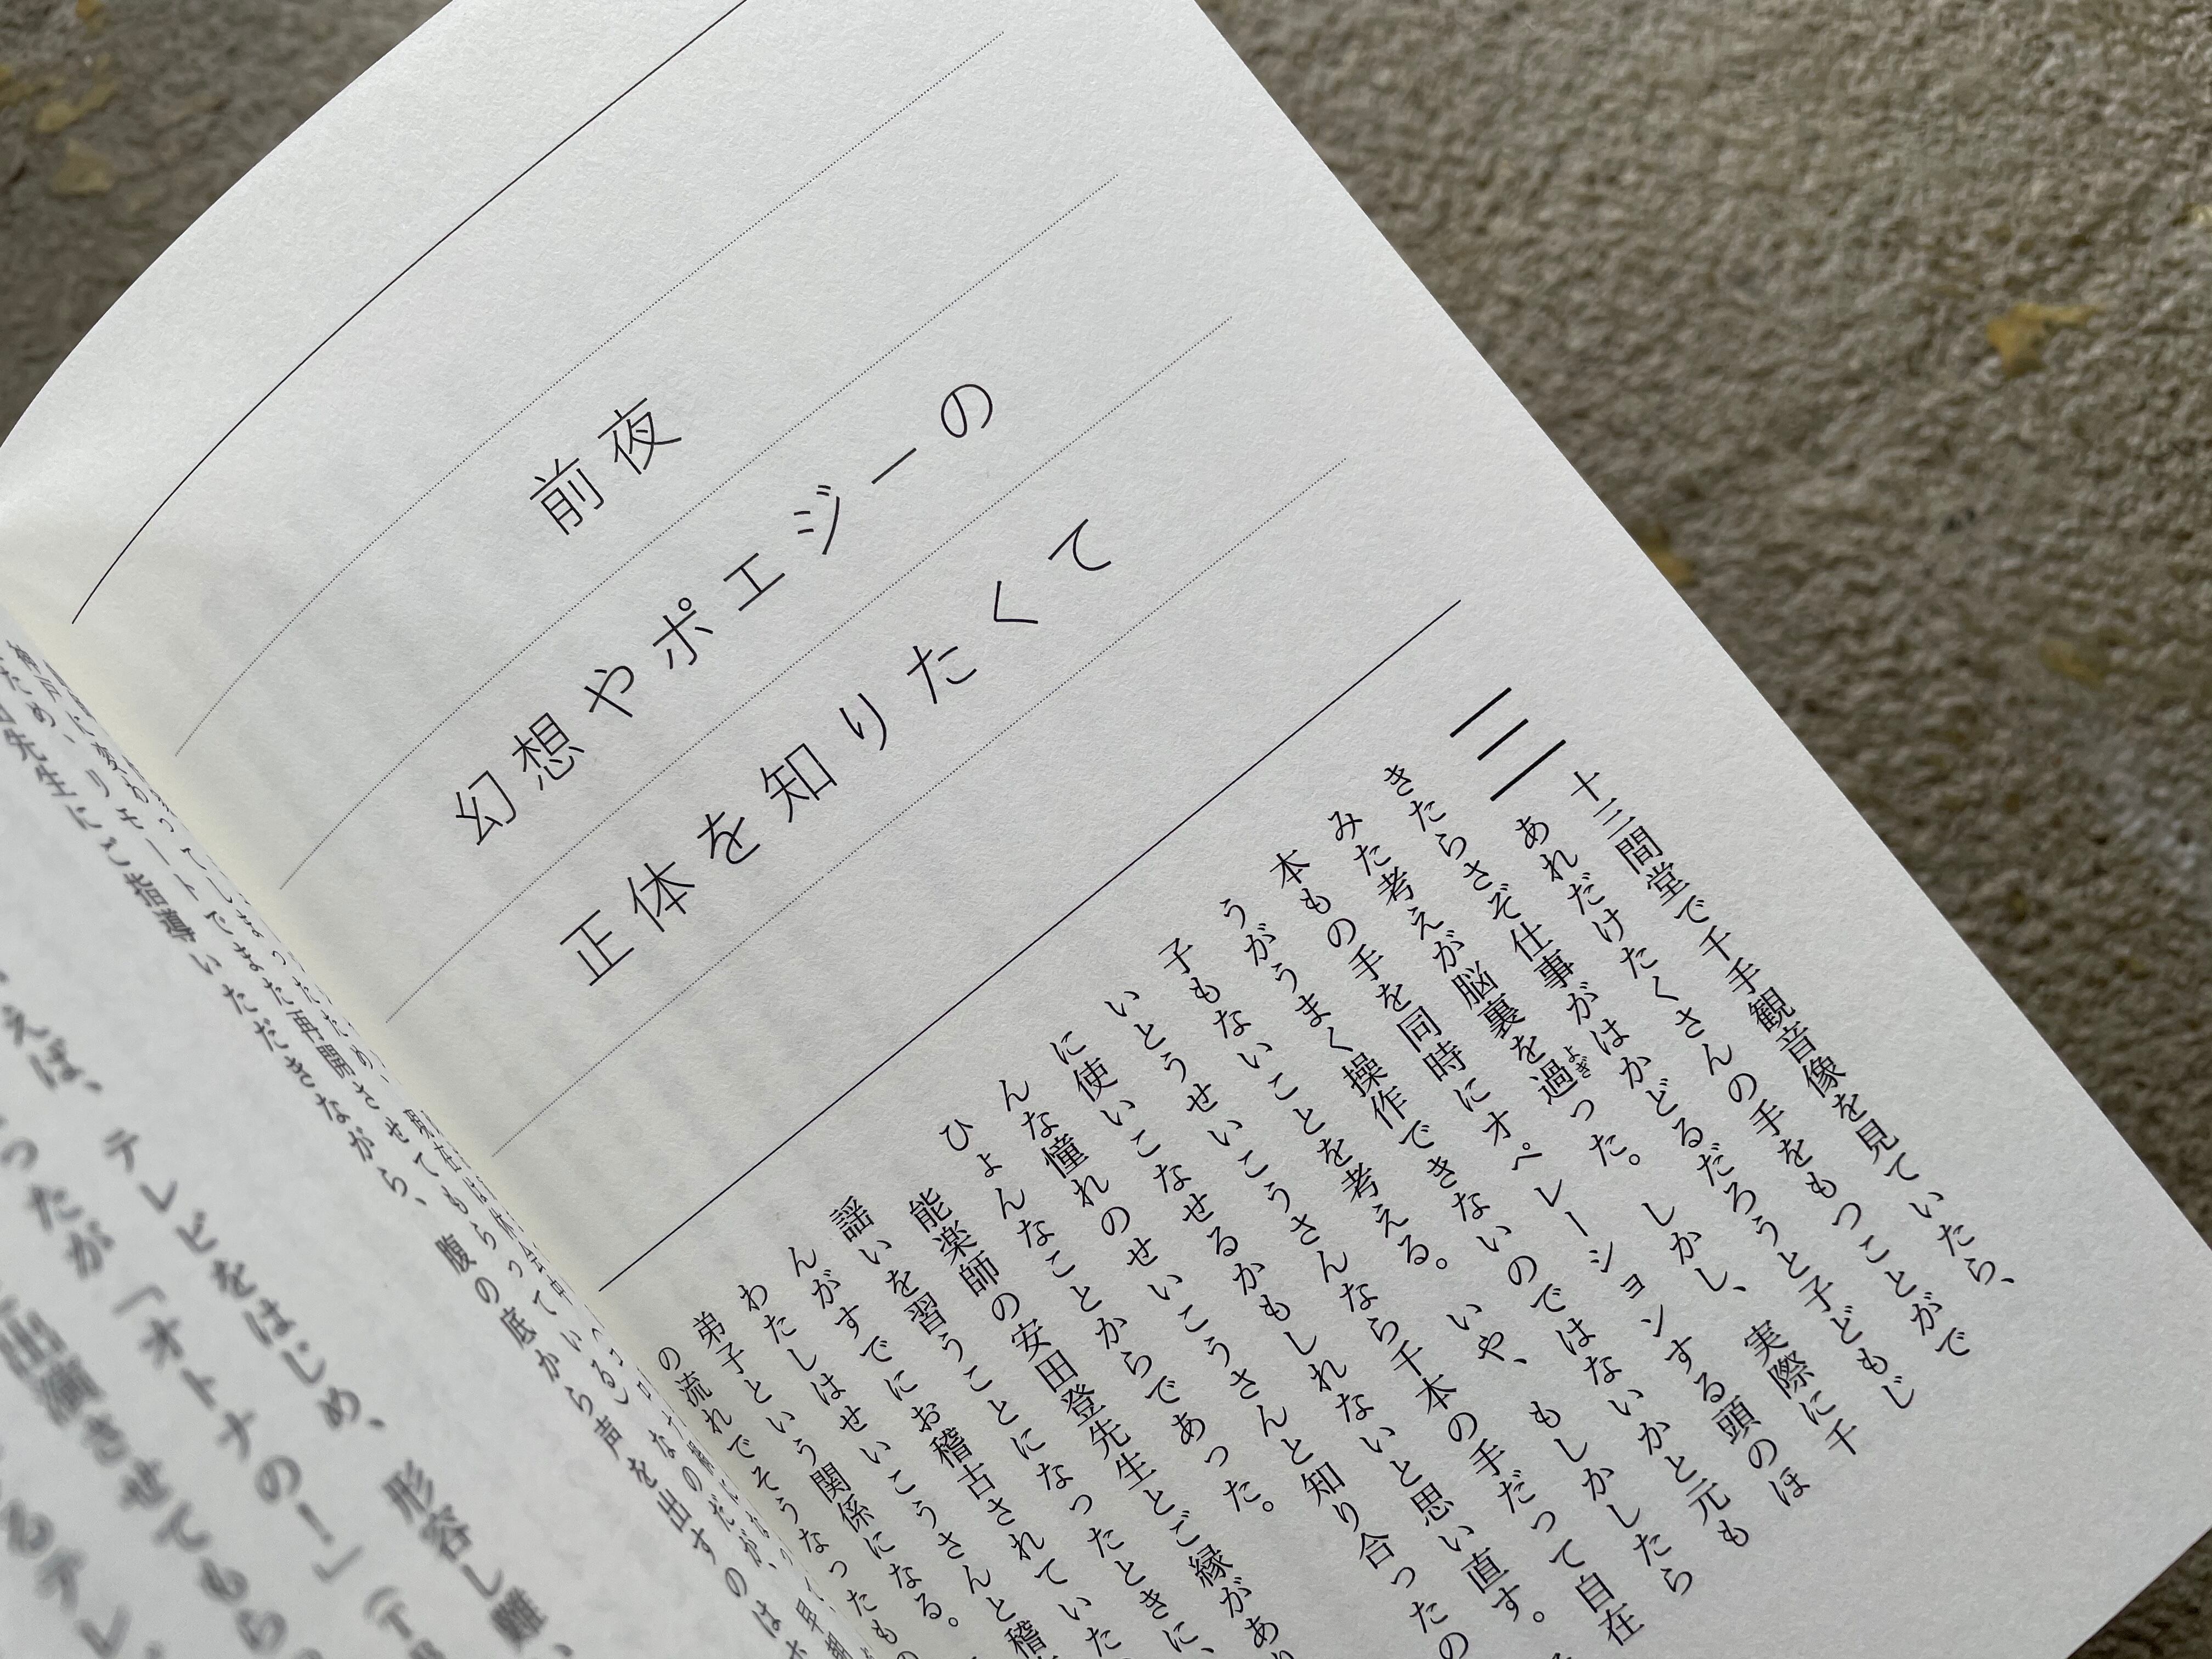 前夜
幻想やポエジーの
正体を知りたくて
三
十三間堂で千手観音像を見ていたら、
あれだけたくさんの手をもつことがで
きたらさぞ仕事がはかどるだろうと子どもじ
みた考えが脳裏を過った。しかし、実際に千
よぎ
本もの手を同時にオペレーションする頭のほ
うがうまく操作できないのではないかと元も
子もないことを考える。いや、もしかしたら
いとうせいこうさんなら千本の手だって自在
に使いこなせるかもしれないと思い直す。
んな憧れのせいこうさんと知り合ったの
ひょんなことからであった。
能楽師の安田登先生とご縁があり
謡いを習うことになったときに、
んがすでにお稽古されていた
わたしはせいこうさんと稽
弟子という関係になる。
の流れでそうなったもの
先生にご指導いただきながら、腹の底から声を出すのは
テレビをはじめ、形容し難
ったが「オトナの！」
出演させてもら